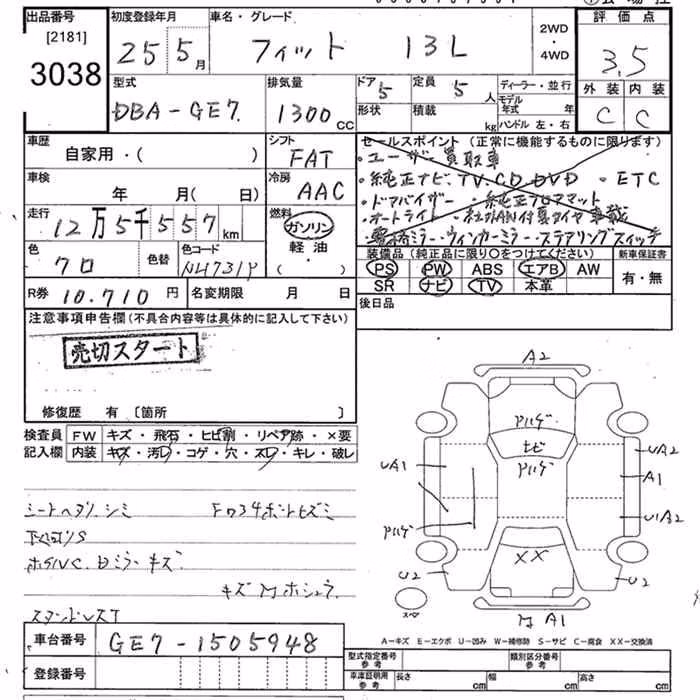 出品番号 初度登録年月 車名・グレード 評価点
[2181]
3038
25 5月 フィット 13L
2WD
・
4WD
3.5
外装 内装
C C
型式 排気量 ドア 定員 ディーラー・並行
DBA-GE7 1300CC 5 5人
モデル年式 年
形状 積載 kg ハンドル 左・右
車歴 シフト セールスポイント (正常に機能するものに限ります)
自家用・( ) FAT
・ユーザー買取車
車検 冷房
年 月( 日) AAC
・純正ナビ、TV.CD.DVD ・ETC
・ドアバイザー ・純正フロアマット
走行 燃料
12万5千557km ガソリン
・オートライト
軽油
・( )
ウィンカーミラー・ステアリングスイッチ
色 色替 色コード
クロ NH731P
装備品 (純正品に限り○をつけてください) 新車保証書
PS PW ABS エアB AW 有・無
SR ナビ TV 本革
R券 10.710円 名変期限 月 日
後日品
注意事項申告欄(不具合内容等は具体的に記入して下さい)
売切スタート
修復歴 有 〔箇所 〕
検査員記入欄 FW キズ・飛石・ヒビ割・リペア跡・×要
内装 キズ・汚レ・コゲ・穴・スレ・キレ・破レ
シートヘタリ.シミ
下廻りS
ミラーキズ
A2
UA1
UA2
A1
U1A2
XX
U2
U2
A1
スペ
A-キズ E-エクボ U-凹み W-補修跡 S-サビ C-腐食 XX-交換済
車台番号 GE7-1505948
登録番号
型式指定番号 参考 類別区分番号 参考
車庫証明用 参考 長さ cm 幅 cm 高さ cm